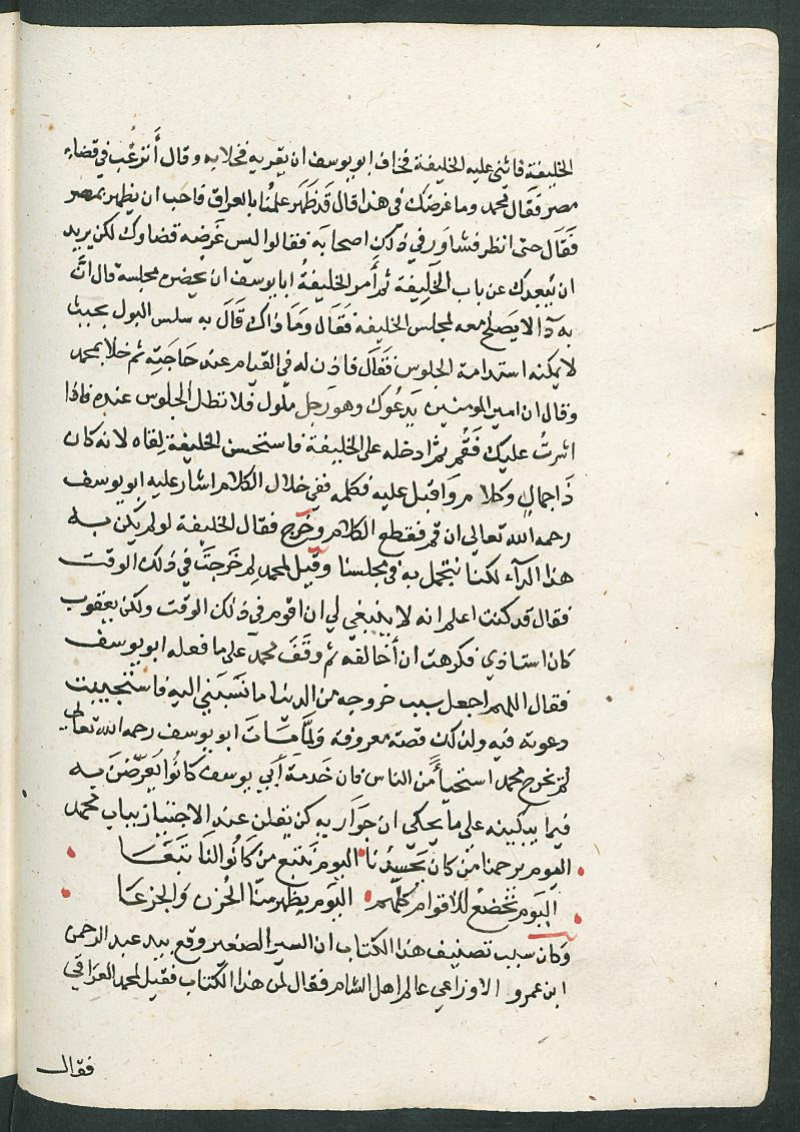 الخليفة فاثنى عليه الخليفة فخاف ابو يوسف ان يقربه فخلا به وقال أترغب في قضاء
مصر فقَال محمد وما غرضك في هذا قال قد ظَهَر علمُنا بالعراق فاحب ان يظهر بمصر
فقَال حتى انظر فشاور في ذلك اصحابه فقالوا ليس غَرضه قضاوك لكن يريد
ان يُبعدك عن باب الخَلِيفة ثم أَمر الخليفةُ ابا يوسف ان يحضره مجلسة قال انَّ
به دآ لا يَصلح معه لمجلس الخليفة فقَال ومَا ذاك قَالَ به سلس البول بحيث
لا يمكنه استدامة الجلوس فقَال فاذن له في القيام عند حَاجَتِه ثم خلا بمحمد
وقال ان امير المومنين يَدعُوك وهو رَجل ملول فلا تطل الجلوس عنده فاذا
اشرتُ عليك فَقُم ثم ادخله على الخليفة فاستحسن الخليفة لِقاه لانه كان
ذَا جمالٍ وكلام واقبل عليه فكلمه ففي خلال الكلام اشار عليه ابو يوسف
رحمه الله تعالى ان قم فقطع الكلام وخَرج فقال الخليفة لو لم يكن به
هذا الدآء لكنا نتجمل به في مجلسنا وقيل لمحمد لِم خَرجتَ في ذلك الوقت
فقال قد كنت اعلم انه لا ينبغي لي ان اقوم في ذلك الوقت ولكن يعقوب
كان استاذي فكرهت ان أخالفه ثم وقَفَ محمد على ما فعله ابو يوسف
فقال اللهم اجعل سبب خروجه من الدنيا ما نَسَبَني اليه فاستجيبت
دعوته فيه ولذلك قصة معروفة ولمَّا مَاتَ ابو يوسف رحمه الله تعالى
لم يخرج محمد استحيأً من الناس فان خَدمة أبي يوسف كانُوا يُعَرّضنَ به
فيما يبكينه على ما يحكي ان جوَاريه كن يقلن عند الاجتياز بباب محمد
اليوم يرحمنا من كان يَحسِدنا اليوم نَتبع من كَانُوا لنَا تَبَعَا
اليَوم نخضع للاقوام كلّهم اليَوم يظهر منّا الحُزن وَالجزعَا
وَكان سبب تصنيف هذا الكتاب ان السير الصغير وقع بيد عبد الرحمن
ابن عمرو الاوزاعي عالم اهل الشام فقال لمن هذا الكتاب فقيل لمحمد العرَاقي
فقال